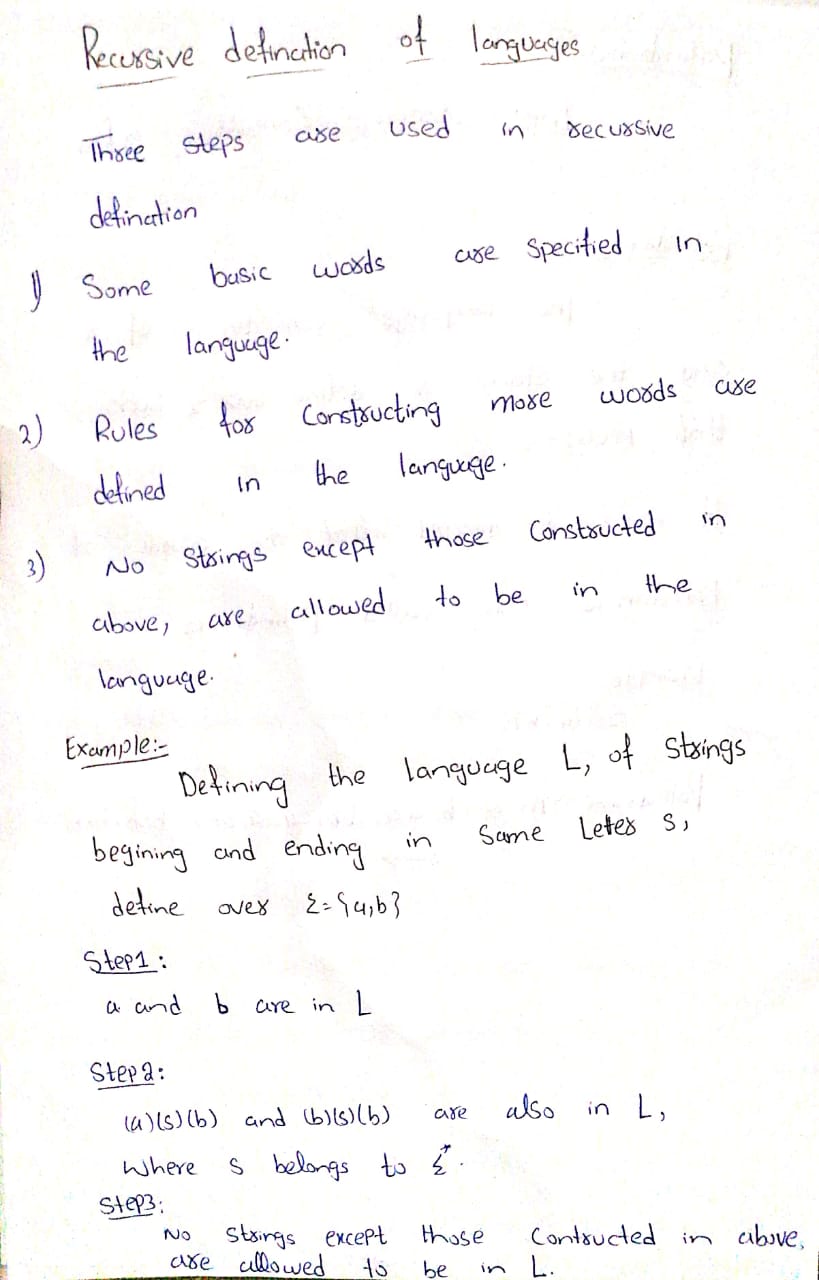 Recursive defination of languages
Three steps are used in recursive
defination
1) Some basic words are specified in
the language.
2) Rules for Constructing more words are
defined in the language.
3) No Strings except those Constructed in
above, are allowed to be in the
language.
Example:-
Defining the language L, of Strings
begining and ending in Same Leter s,
define over Σ={a,b}
Step1:
a and b are in L
Step2:
(a)(s)(b) and (b)(s)(b) are also in L,
Where s belongs to Σ*.
Step3:
No Strings except those Contructed in above,
are allowed to be in L.